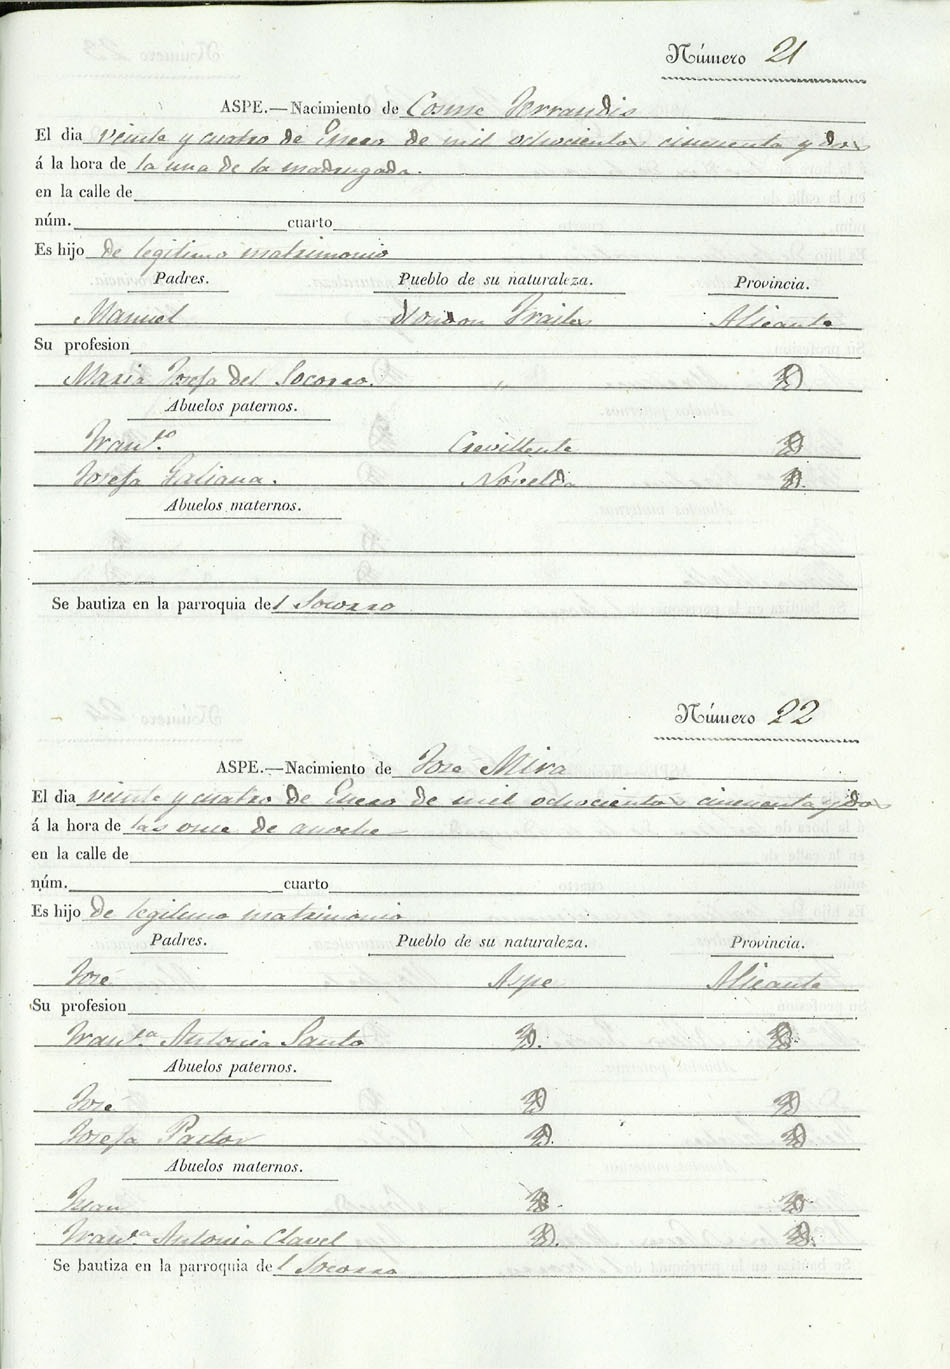 Número 21
ASPE.—Nacimiento de Cosme Ferrandis
El dia veinte y cuatro de Enero de mil ochocientos cincuenta y dos
á la hora de la una de la madrugada.
en la calle de
núm. cuarto
Es hijo de legitimo matrimonio
Padres. Pueblo de su naturaleza. Provincia.
Manuel Frailes Alicante
Su profesion
Maria Josefa del Socorro. D
Abuelos paternos.
Franco. Crevillente D
Josefa Galiana. Novelda D
Abuelos maternos.
Se bautiza en la parroquia del Socorro
Número 22
ASPE.—Nacimiento de Jose Mira
El dia veinte y cuatro de Enero de mil ochocientos cincuenta y dos
á la hora de las once de anoche
en la calle de
núm. cuarto
Es hijo de legitimo matrimonio
Padres. Pueblo de su naturaleza. Provincia.
José Aspe Alicante
Su profesion
Franca Antonia Santo D. D.
Abuelos paternos.
José D D
Josefa Pastor D. D
Abuelos maternos.
Juan D. D.
Franca Antonia Clavel D. D.
Se bautiza en la parroquia del Socorro